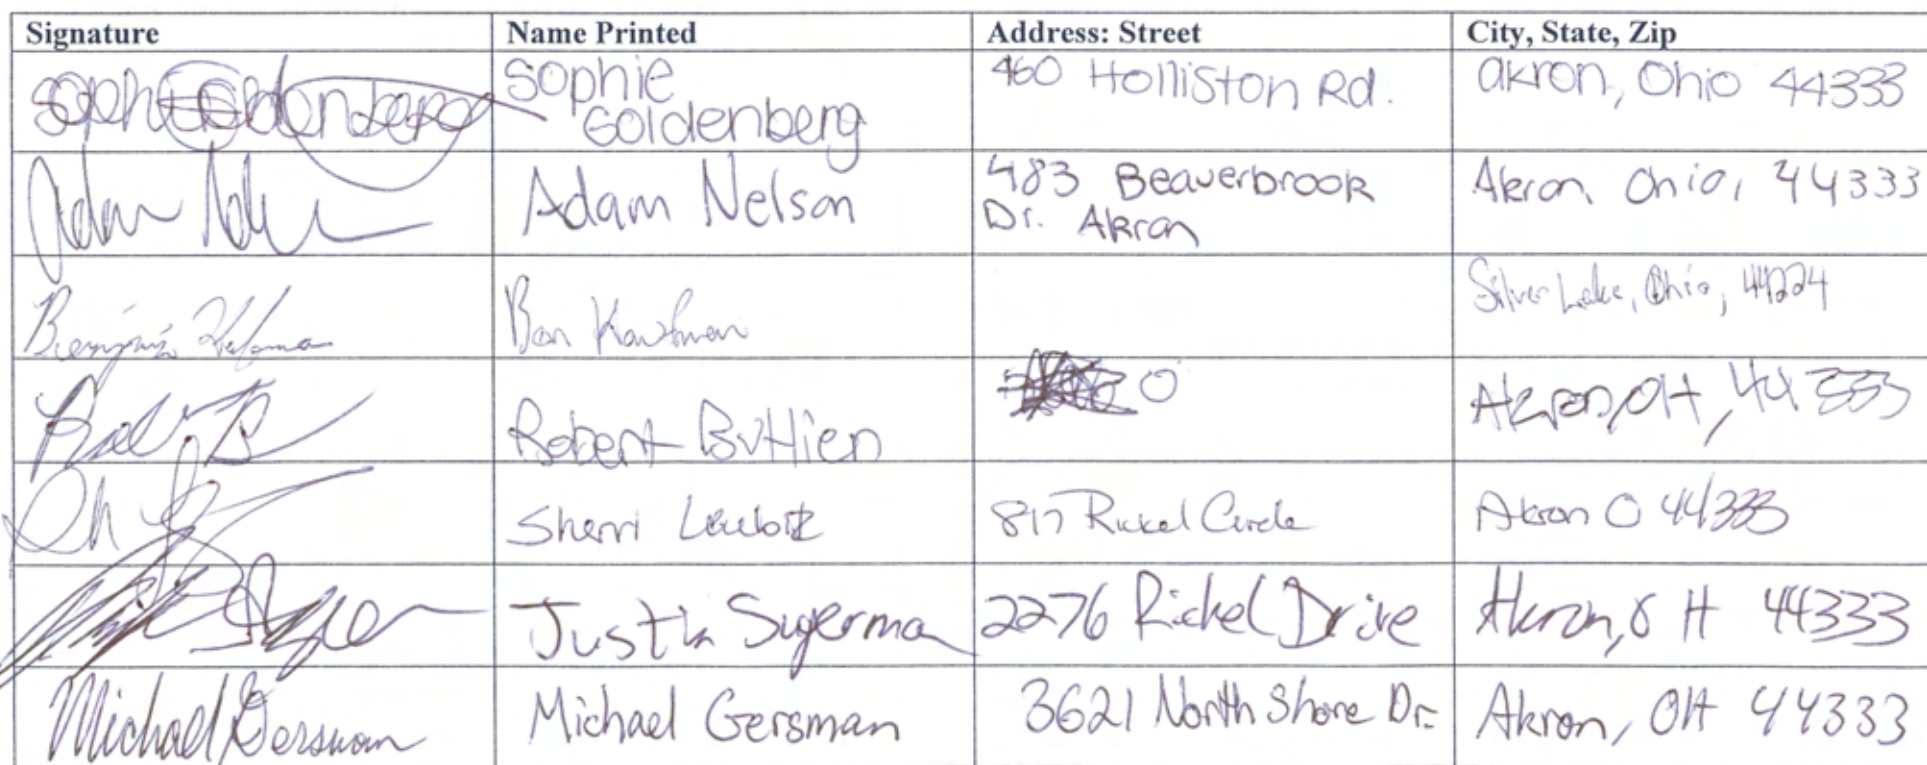 Signature Name Printed Address: Street City, State, Zip
Sophie Goldenberg Sophie 460 Holliston Rd. Akron, Ohio 44333
Goldenberg
Adam Nelson Adam Nelson 483 Beaverbrook Akron, Ohio, 44333
Dr. Akron
Ben Kaufman Silver Lake, Ohio, 44224
Robert Buttien O Akron, OH, 44333
Sherri 817 Rickel Circle Akron O 44333
Justin Sugerma 2276 Rickel Drive Akron, OH 44333
Michael Gersman Michael Gersman 3621 North Shore Dr. Akron, OH 44333